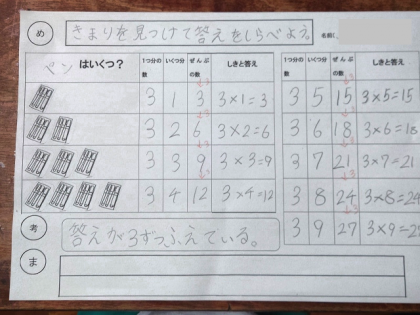 め きまりを見つけて答えをしらべよう
名前(
ペン はいくつ？ 1つ分の数 いくつ分 ぜんぶの数 しきと答え
3 1 3 3×1=3
3 2 6 3×2=6
3 3 9 3×3=9
3 4 12 3×4=12
1つ分の数 いくつ分 ぜんぶの数 しきと答え
3 5 15 3×5=15
3 6 18 3×6=18
3 7 21 3×7=21
3 8 24 3×8=24
3 9 27 3×9=2
考 答えが3ずつふえている。
ま